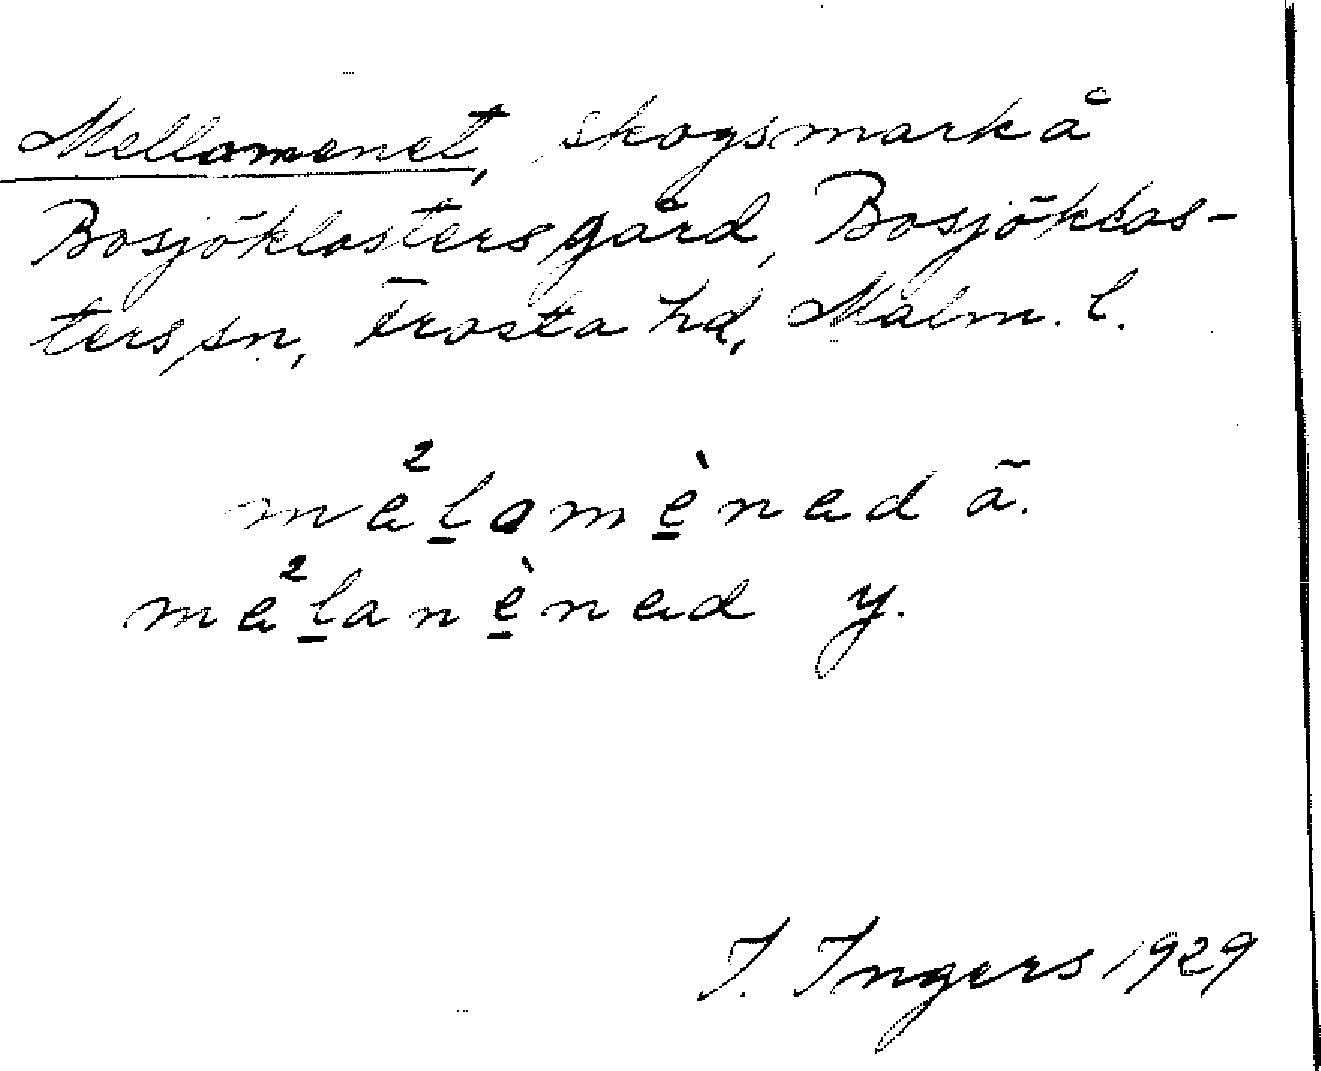 Mellomenet, skogsmark å
Bosjöklosters gård, Bosjöklos-
ters sn, Frosta hd, Malm. l.
mǝ²l̲omè̲nǝd ä.
mǝ²l̲anè̲nǝd y.
I. Ingers 1929